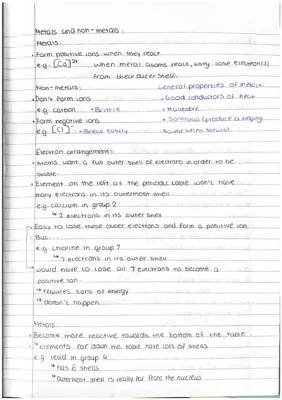 Metals and non-metals:
Metals:
• Form positive ions when they react
e.g. [Ca]²⁺ when metal atoms react, they lose electron(s)
from their outer shell.
Non-metals: General properties of metals:
• Don't form ions • Good conductors of heat
e.g. carbon • Brittle • Malleable
• Form negative ions • Sonorous (produce a ringing
e.g. [Cl]⁻ • Break easily sound when struck).
Electron arrangement:
• Atoms want a full outer shell of electrons in order to be
stable.
• Element on the left of the periodic table won't have
many electrons in its outermost shell
e.g. calcium in group 2
↳ 2 electrons in its outer shell
• Easy to lose these outer electrons and form a positive ion.
But
e.g. chlorine in group 7
↳ 7 electrons in its outer shell
would have to lose all 7 electrons to become a
positive ion.
↳ requires tons of energy
↳ doesn't happen
Metals:
• Become more reactive towards the bottom of the table
↳ elements far down the table have lots of shells
e.g. lead in group 4
↳ has 6 shells
↳ outermost shell is really far from the nucleus